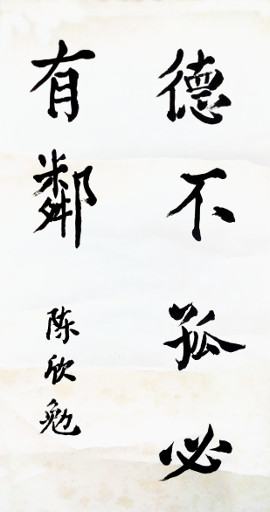 德不孤必
有鄰
陈欣勉